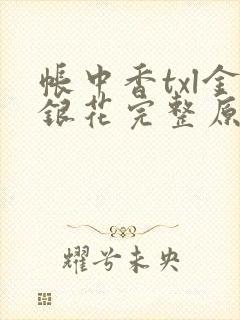 帐中香txl金
银花完整原
耀兮未央